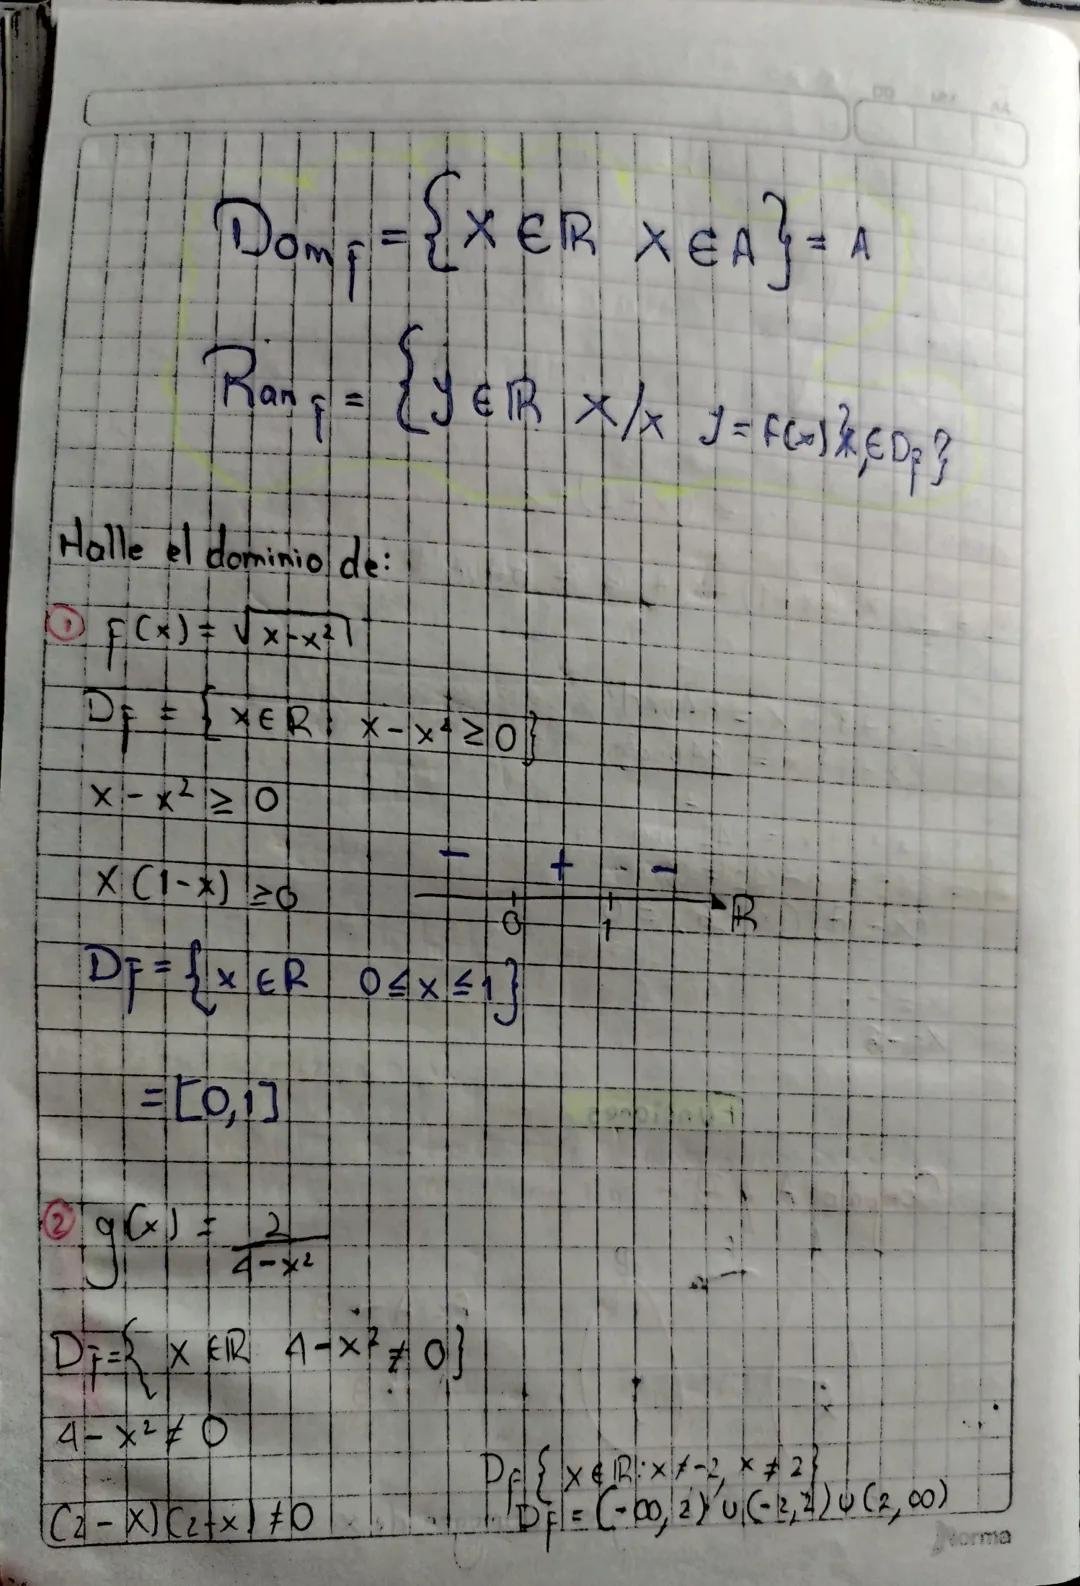 Dom f = {x ∈ ℝ x ∈ A} = A
Ran f = {y ∈ ℝ x/x y = f(x) } x, ∈ D f }
Halle el dominio de:
① f(x) = √x-x²
Df = {x ∈ R: x - x² ≥ 0}
x - x² ≥ 0
x(1-x) ≥ 0
- + -
0 1 R
Df = {x ∈ R 0 ≤ x ≤ 1}
= [0,1]
② g(x) = 2/4-x²
Df = { x ∈ ℝ 4-x² ≠ 0}
4 - x² ≠ 0
Df { x ∈ ℝ: x ≠ -2, x ≠ 2}
(2-x)(2+x) ≠ 0 Df = (-∞, 2) ∪ (-2, 2) ∪ (2, ∞)
Norma